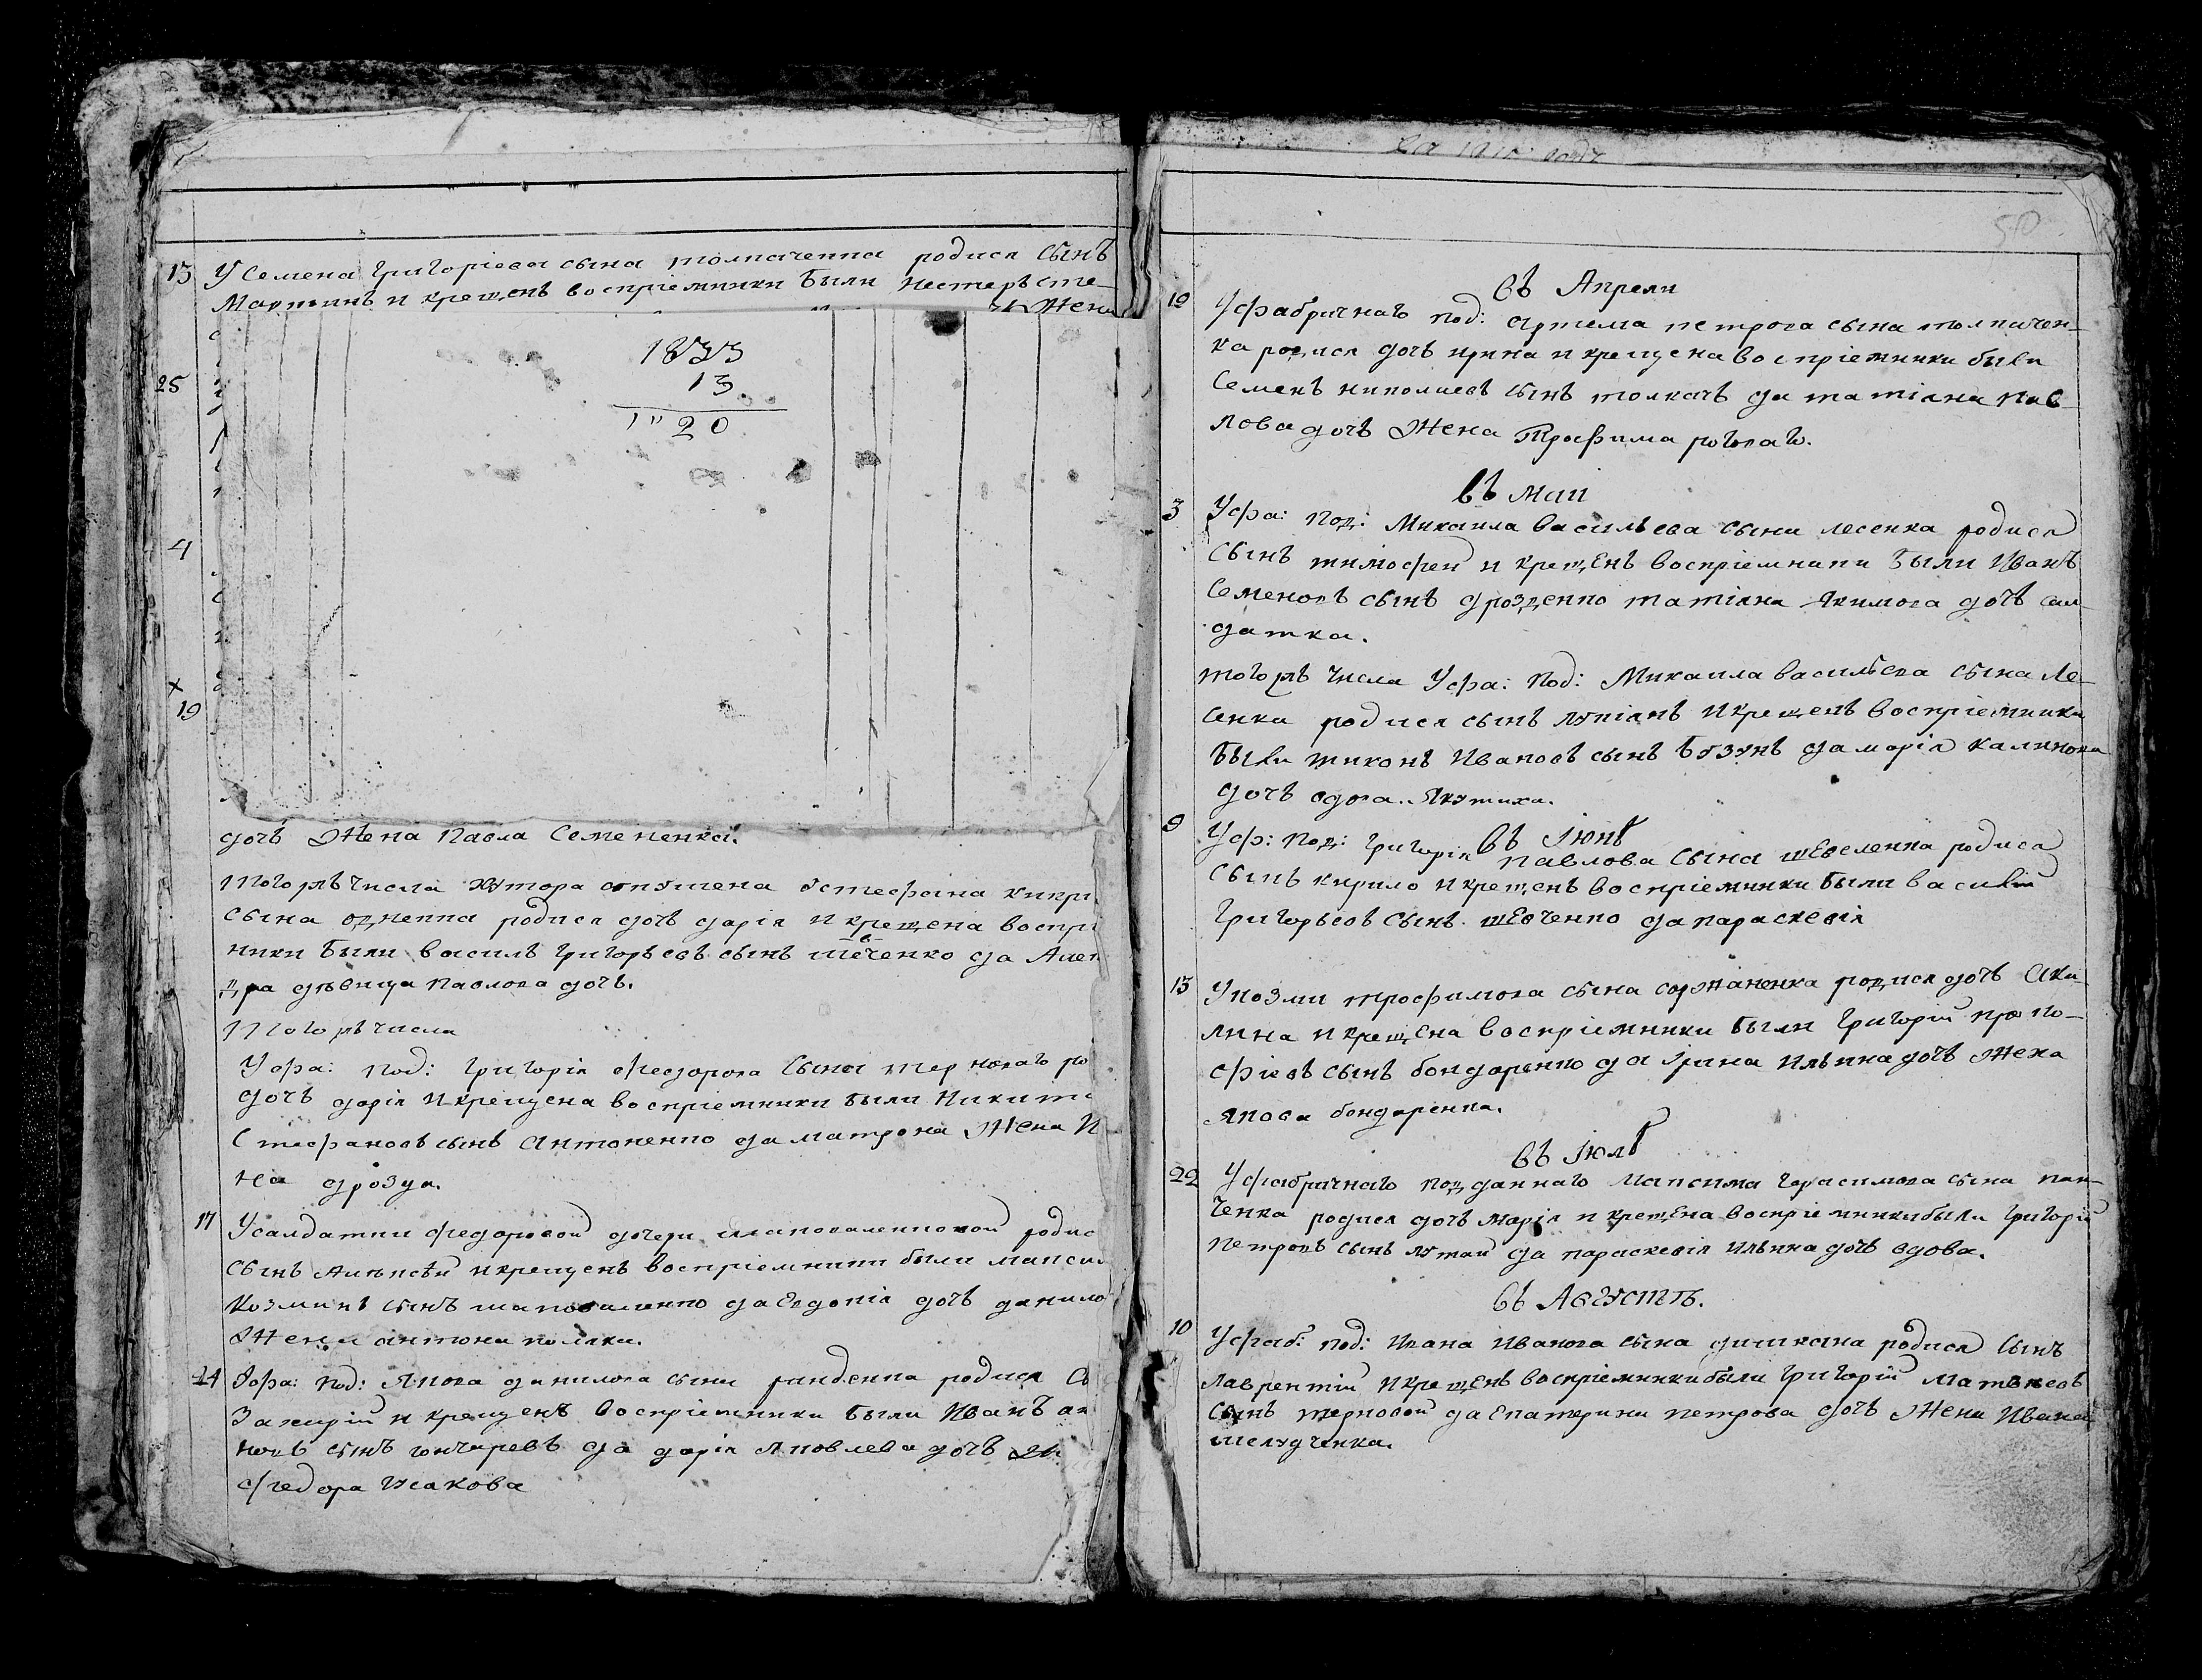 13 У Семена Григоріева сына толпаченка родися сынъ
Мартинъ и крещенъ воспріемники были Нестеръ сте-
Жена
1833
13
20
25
4
19
дочъ Жена Павла Семененка.
тогожъ числа хутора
сына родися дочъ дарія и крещена воспрі
ники были василъ Григорьевъ сынъ шевченко да
дѣвица Павлова дочъ.
тогожъ числа
У фа: под: Григорія феодорова сына терноваго ро
дочъ дарія и крещена воспріемники были Никита
Стефановъ сынъ Антоненко да матрона Жена И
на дрозда.
17 У салдатки федоровой дочери шаповаленковой родис
сынъ Алексѣй и крещенъ воспріемники были максим
Козминъ сынъ шаповаленко да Евдокія дочъ данило
Жена антона поляки.
24 У фа: под: Якова данилова сына родися сы
Захарій и крещенъ воспріемники были Иванъ
новъ сынъ гончаревъ да дарія Яковлева дочъ
федора Исакова
50
въ Апрели
19 У фабричнаго под: артема петрова сына толпачен-
ка родися дочъ ирина и крещена воспріемники были
Семенъ николаевъ сынъ толкачъ да татіяна пав-
лова дочъ Жена Трофима роговаго.
въ маи
3 У фа: под: Михаила васильева сына лесенка родися
сынъ тимофей и крещенъ воспріемники были Иванъ
Семеновъ сынъ дрозденко татіяна Якимова дочъ сал-
датка.
тогожъ числа У фа: под: Михаила васильева сына Ле-
сенка родися сынъ лукіянъ и крещенъ воспріемники
были тихонъ Ивановъ сынъ бузунъ да марія калинова
дочъ вдова. Якутиха.
въ Іюнѣ
9 У ф: под: григорія павлова сына шевеленка родися
сынъ кирило и крещенъ воспріемники были василій
григорьевъ сынъ шевченко да параскевія
13 У козми трофимова сына соржаненка родися дочъ Аку-
лина и крещена воспріемники были григорій проко-
фіевъ сынъ бондаренко да ірина Ильина дочъ Жена
якова бондаренка.
въ Іюлѣ
22 У фабричнаго подданнаго максима герасимова сына пан-
ченка родися дочъ марія и крещена воспріемники были григорій
петровъ сынъ лутай да параскевія Ильина дочъ вдова.
въ Августѣ.
10 У фаб: под: Ивана Иванова сына дишкана родися сынъ
Лаврентій и крещенъ воспріемники были григорій матвѣевъ
сынъ терновой да Екатерина петрова дочъ Жена Ивана
шелудченка.